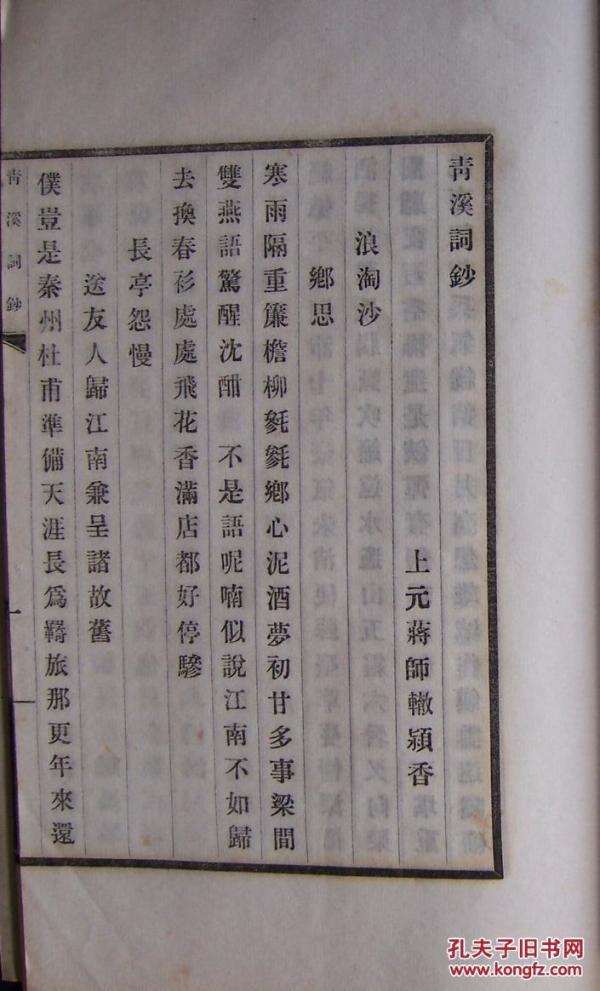 青溪詞鈔
上元蔣師轍潁香
浪淘沙
鄉思
寒雨隔重簾檐柳毿毿鄉心泥酒夢初甘多事梁間
雙燕語驚醒沈酣　不是語呢喃似說江南不如歸
去換春衫處處飛花香滿店都好停驂
長亭怨慢
送友人歸江南兼呈諸故舊
僕豈是秦州杜甫準備天涯長爲羇旅那更年來還
青溪詞鈔
一
孔夫子旧书网
www.kongfz.com